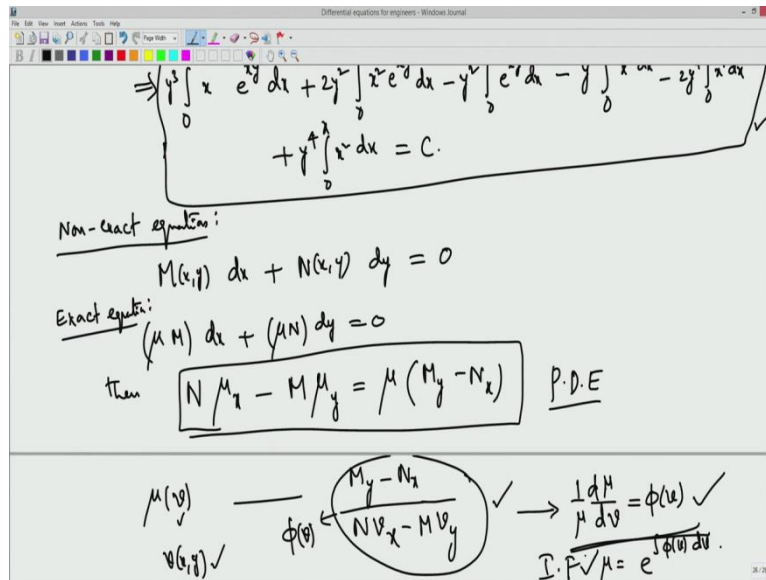 Differential equations for engineers - Windows Journal
File Edit View Insert Actions Tools Help
Page Width
B I
⇒ y³ ∫₀ x e^{xy} dx + 2y² ∫₀ x² e^{-y} dx - y² ∫₀ e^{-y} dx - y ∫₀ dx - 2y ∫₀ x dx
+ y⁴ ∫₀ˣ x² dx = C.
Non-exact equation:
M(x,y) dx + N(x,y) dy = 0
Exact equatin:
(μM) dx + (μN) dy = 0
then N μ_x - M μ_y = μ (M_y - N_x) P.D.E
μ(v) — φ(v) ← (M_y - N_x)/(N v_x - M v_y) ✓ → 1/μ dμ/dv = φ(v) ✓
v(x,y) ✓ I.F ✓ μ = e^{∫φ(v) dv}.